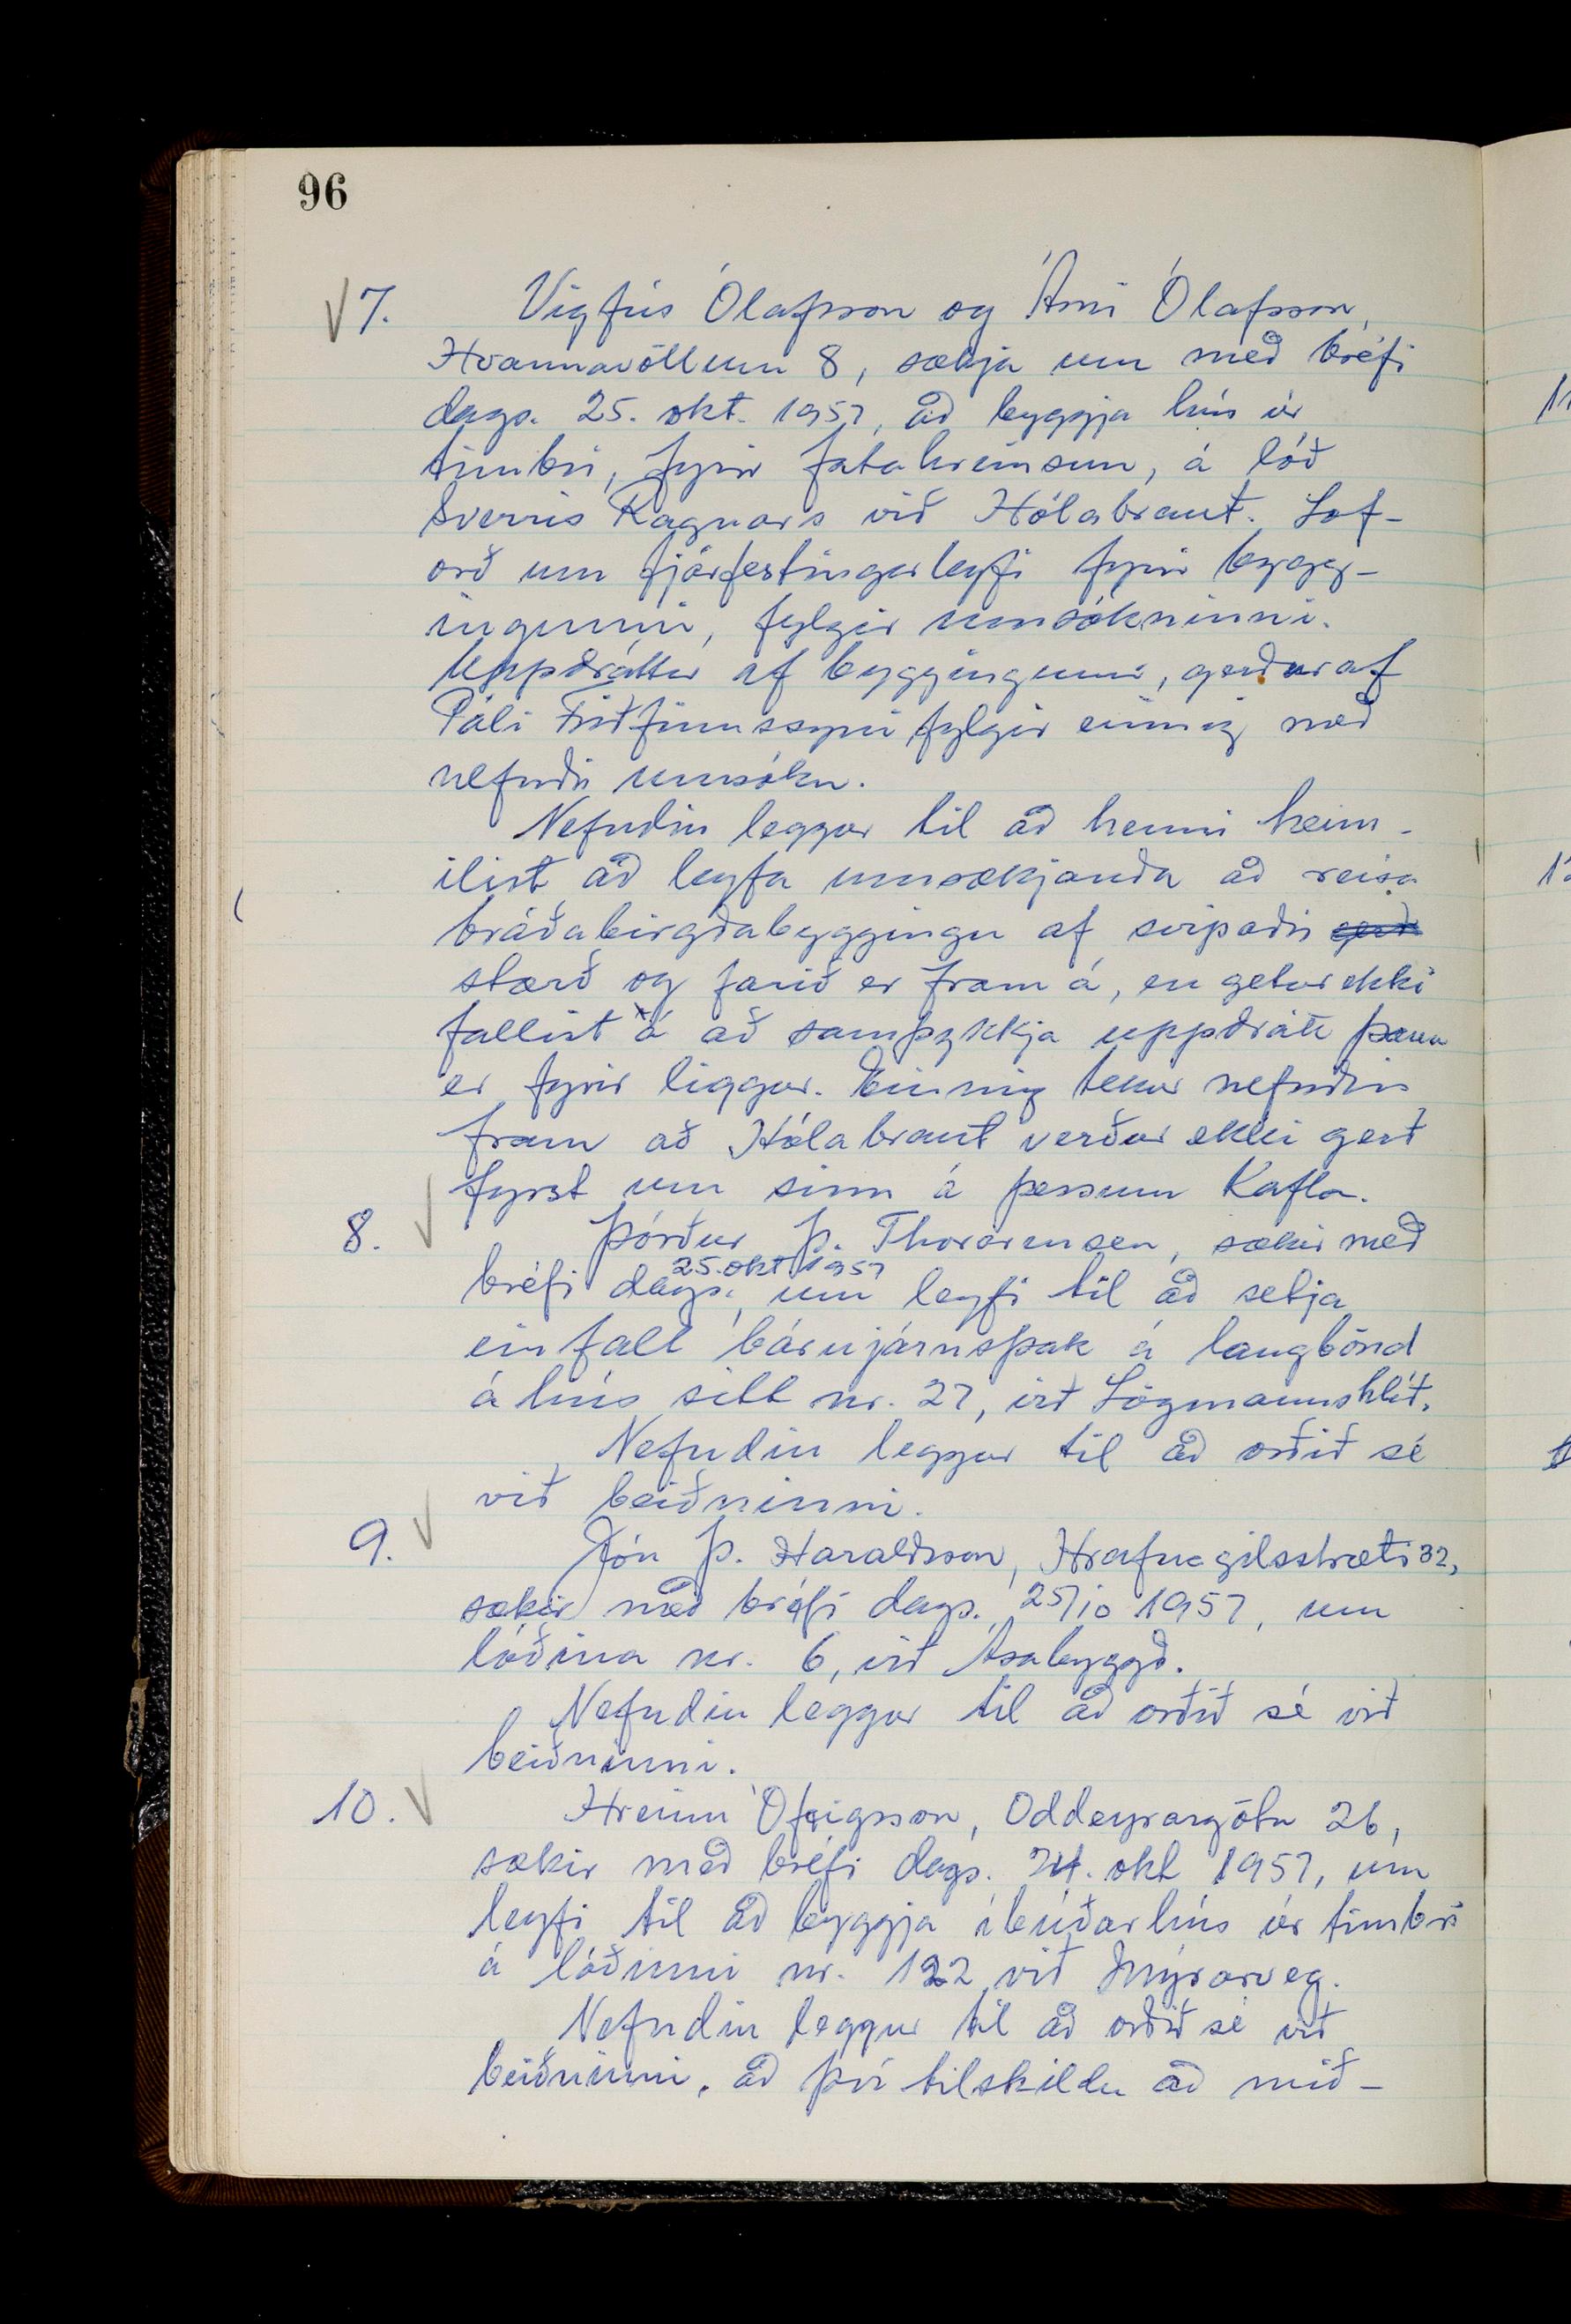 96
7. Vigfús Ólafsson og Árni Ólafsson,
Hvannavöllum 8, sækja um með bréfi
dags. 25. okt. 1957, að byggja hús úr
timbri, fyrir fatahreinsun, á lóð
Sverris Ragnars við Hólabraut. Lof-
orð um fjárfestingarleyfi fyrir bygg-
ingunni, fylgir umsókninni.
Uppdráttur af byggingunni, gerður af
Páli Friðfinnssyni fylgir einnig með
nefndri umsókn.
Nefndin leggur til að henni heim-
ilist að leyfa umsækjanda að reisa
bráðabirgðabyggingu af svipaðri gerð
stærð og farið er fram á, en getur ekki
fallist á að samþykkja uppdrátt þann
er fyrir liggur. Einnig tekur nefndin
fram að Hólabraut verður ekki gert
fyrst um sinn á þessum kafla.
8. Þórður Þ. Thorarensen, sækir með
25. okt 1957
bréfi dags., um leyfi til að setja
einfalt bárujárnsþak á langbönd
á hús sitt nr. 27, við Lögmannshlíð.
Nefndin leggur til að orðið sé
við beiðninni.
9. Jón Þ. Haraldsson, Hrafnagilsstræti 32,
sækir með bréfi dags. 25/10 1957, um
lóðina nr. 6, við Ásabyggð.
Nefndin leggur til að orðið sé við
beiðninni.
10. Hreinn Ófeigsson, Oddeyrargötu 26,
sækir með bréfi dags. 24. okt 1957, um
leyfi til að byggja íbúðarhús úr timbri
á lóðinni nr. 122 við Mýrarveg.
Nefndin leggur til að orðið sé við
beiðninni, að því tilskildu að mið-